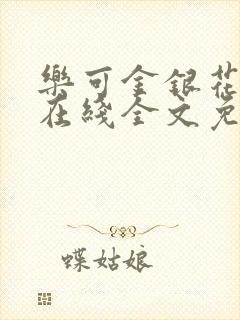 樂可金銀花
在綫全文免
蝶姑娘